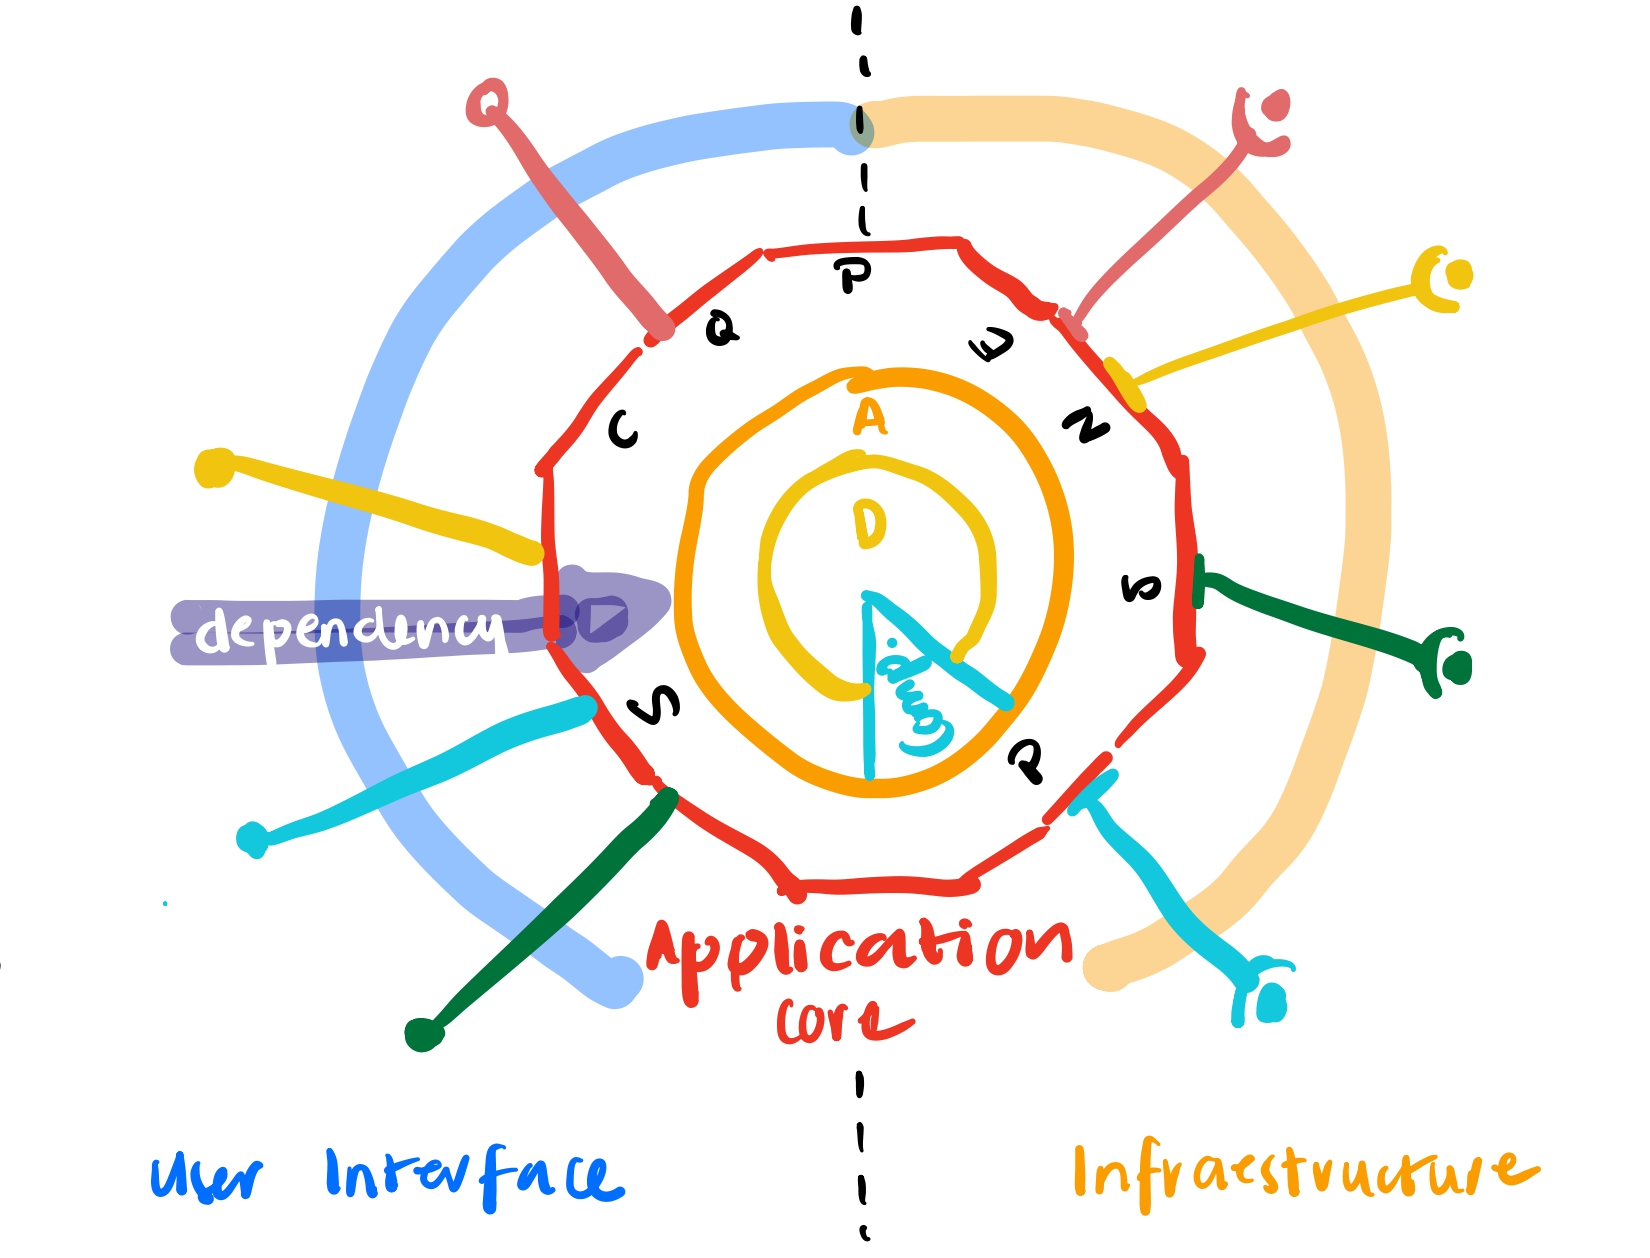 P
Q
E
C
A
N
D
dependency
B
Comp.
S
P
Application
core
User Interface
Infraestructure